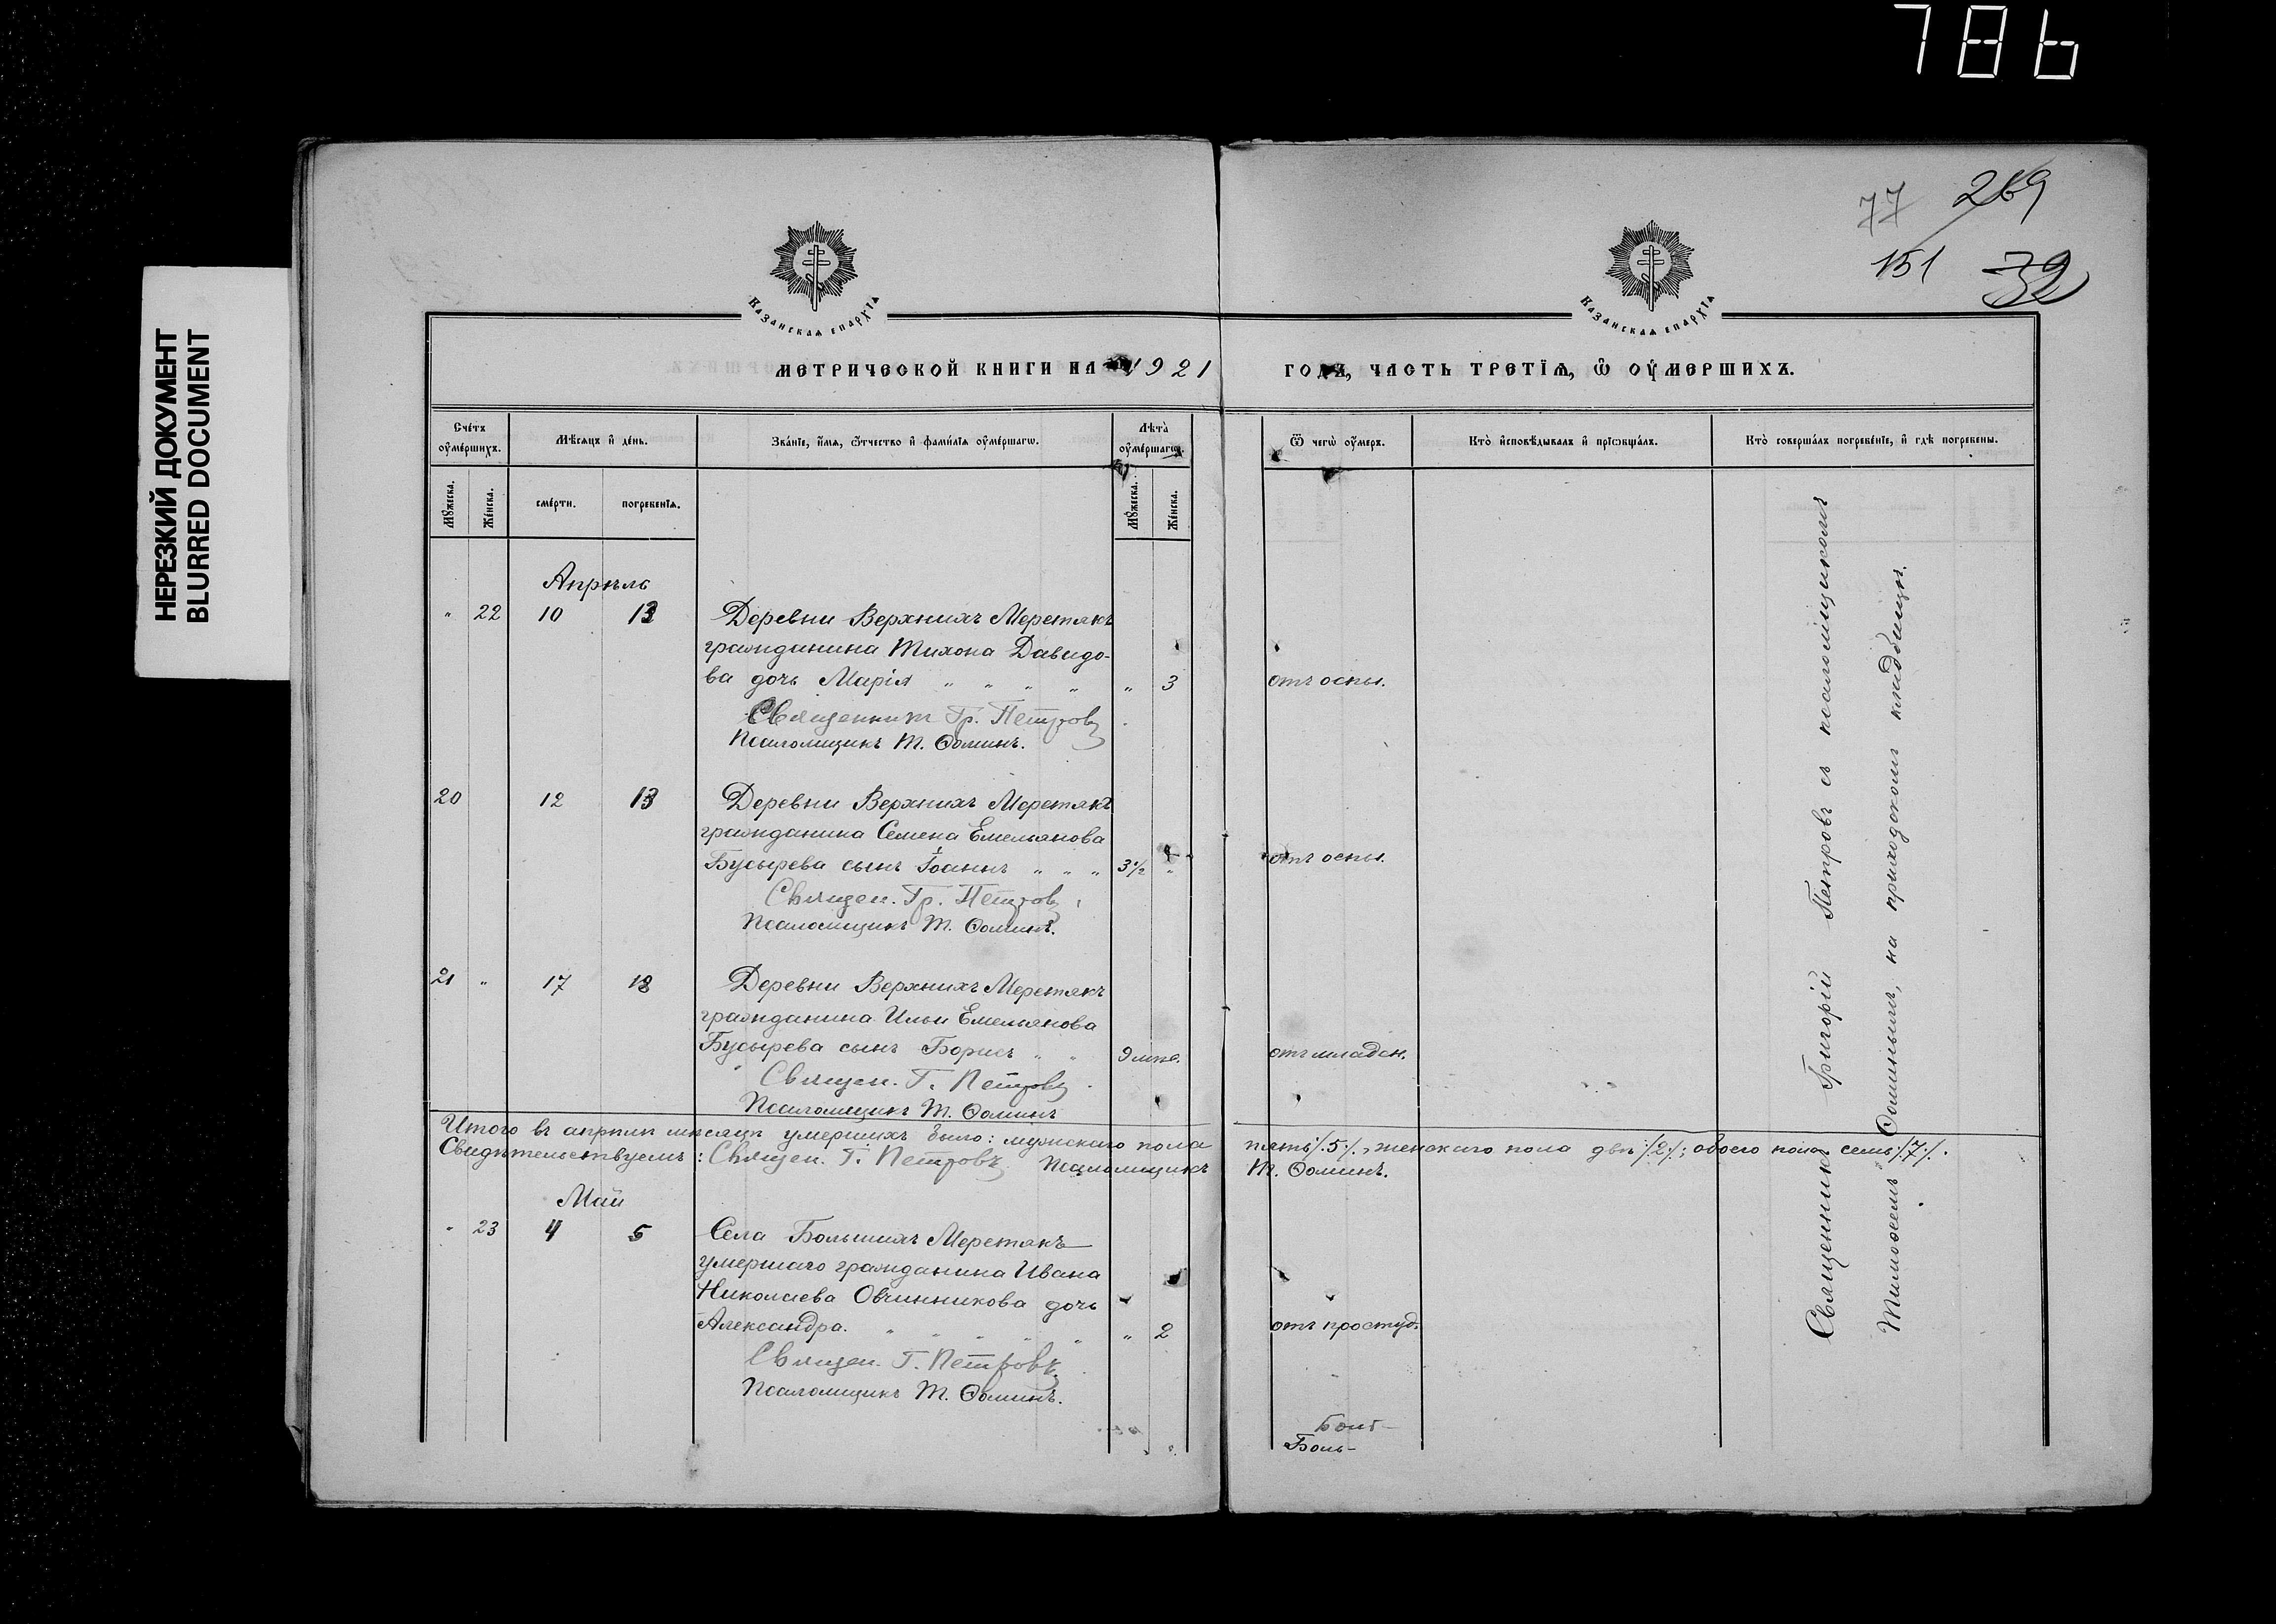 786
НЕРЕЗКИЙ ДОКУМЕНТ
BLURRED DOCUMENT
77 269
151 32
КАЗАНСКАЯ ЕПАРХІЯ
КАЗАНСКАЯ ЕПАРХІЯ
МЕТРИЧЕСКОЙ КНИГИ НА 1921 ГОДЪ, ЧАСТЬ ТРЕТІѦ, Ѿ ОУМЕРШИХЪ.
Счетъ оумершихъ.
Мѣсяцъ и день.
Званіе, имя, ѿчество и фамилія оумершагѡ.
Лѣта оумершагѡ.
Ѿ чегѡ оумеръ.
Кто исповѣдывалъ и пріѡбщалъ.
Кто совершалъ погребеніе, и гдѣ погребены.
Мꙋжеска.
Женска.
смерти.
погребенія.
Мꙋжеска.
Женска.
Апрѣль
" 22 10 13 Деревни Верхнихъ Меретякъ
гражданина Тихона Давидо-
ва дочь Марія " " " " " 3 отъ оспы.
Священникъ Гр. Петровъ
Псаломщикъ Т. Ѳоминъ.
20 12 13 Деревни Верхнихъ Меретякъ
гражданина Семена Емельянова
Бусырева сынъ Іоаннъ " " " 3½ " отъ оспы.
Священ. Гр. Петровъ
Псаломщикъ Т. Ѳоминъ.
21 " 17 18 Деревни Верхнихъ Меретякъ
гражданина Ильи Емельянова
Бусырева сынъ Борисъ " " 9 мѣс. отъ младен.
Священ. Г. Петровъ
Псаломщикъ Т. Ѳоминъ
Итого въ апрѣлѣ мѣсяцѣ умершихъ было: мужского пола пять /5/., женскаго пола двѣ /2/.; обоего пола семь /7/.
Свидѣтельствуемъ: Священ. Г. Петровъ Псаломщикъ Т. Ѳоминъ.
Май
" 23 4 5 Села Большихъ Меретякъ
умершаго гражданина Ивана
Николаева Овчинникова дочь
Александра. " " " " " " 2 отъ простуд.
Священ. Г. Петровъ
Псаломщикъ Т. Ѳоминъ.
Боль-
Священникъ Григорій Петровъ съ псаломщикомъ
Тимоѳеемъ Ѳоминымъ, на приходскомъ кладбищѣ.